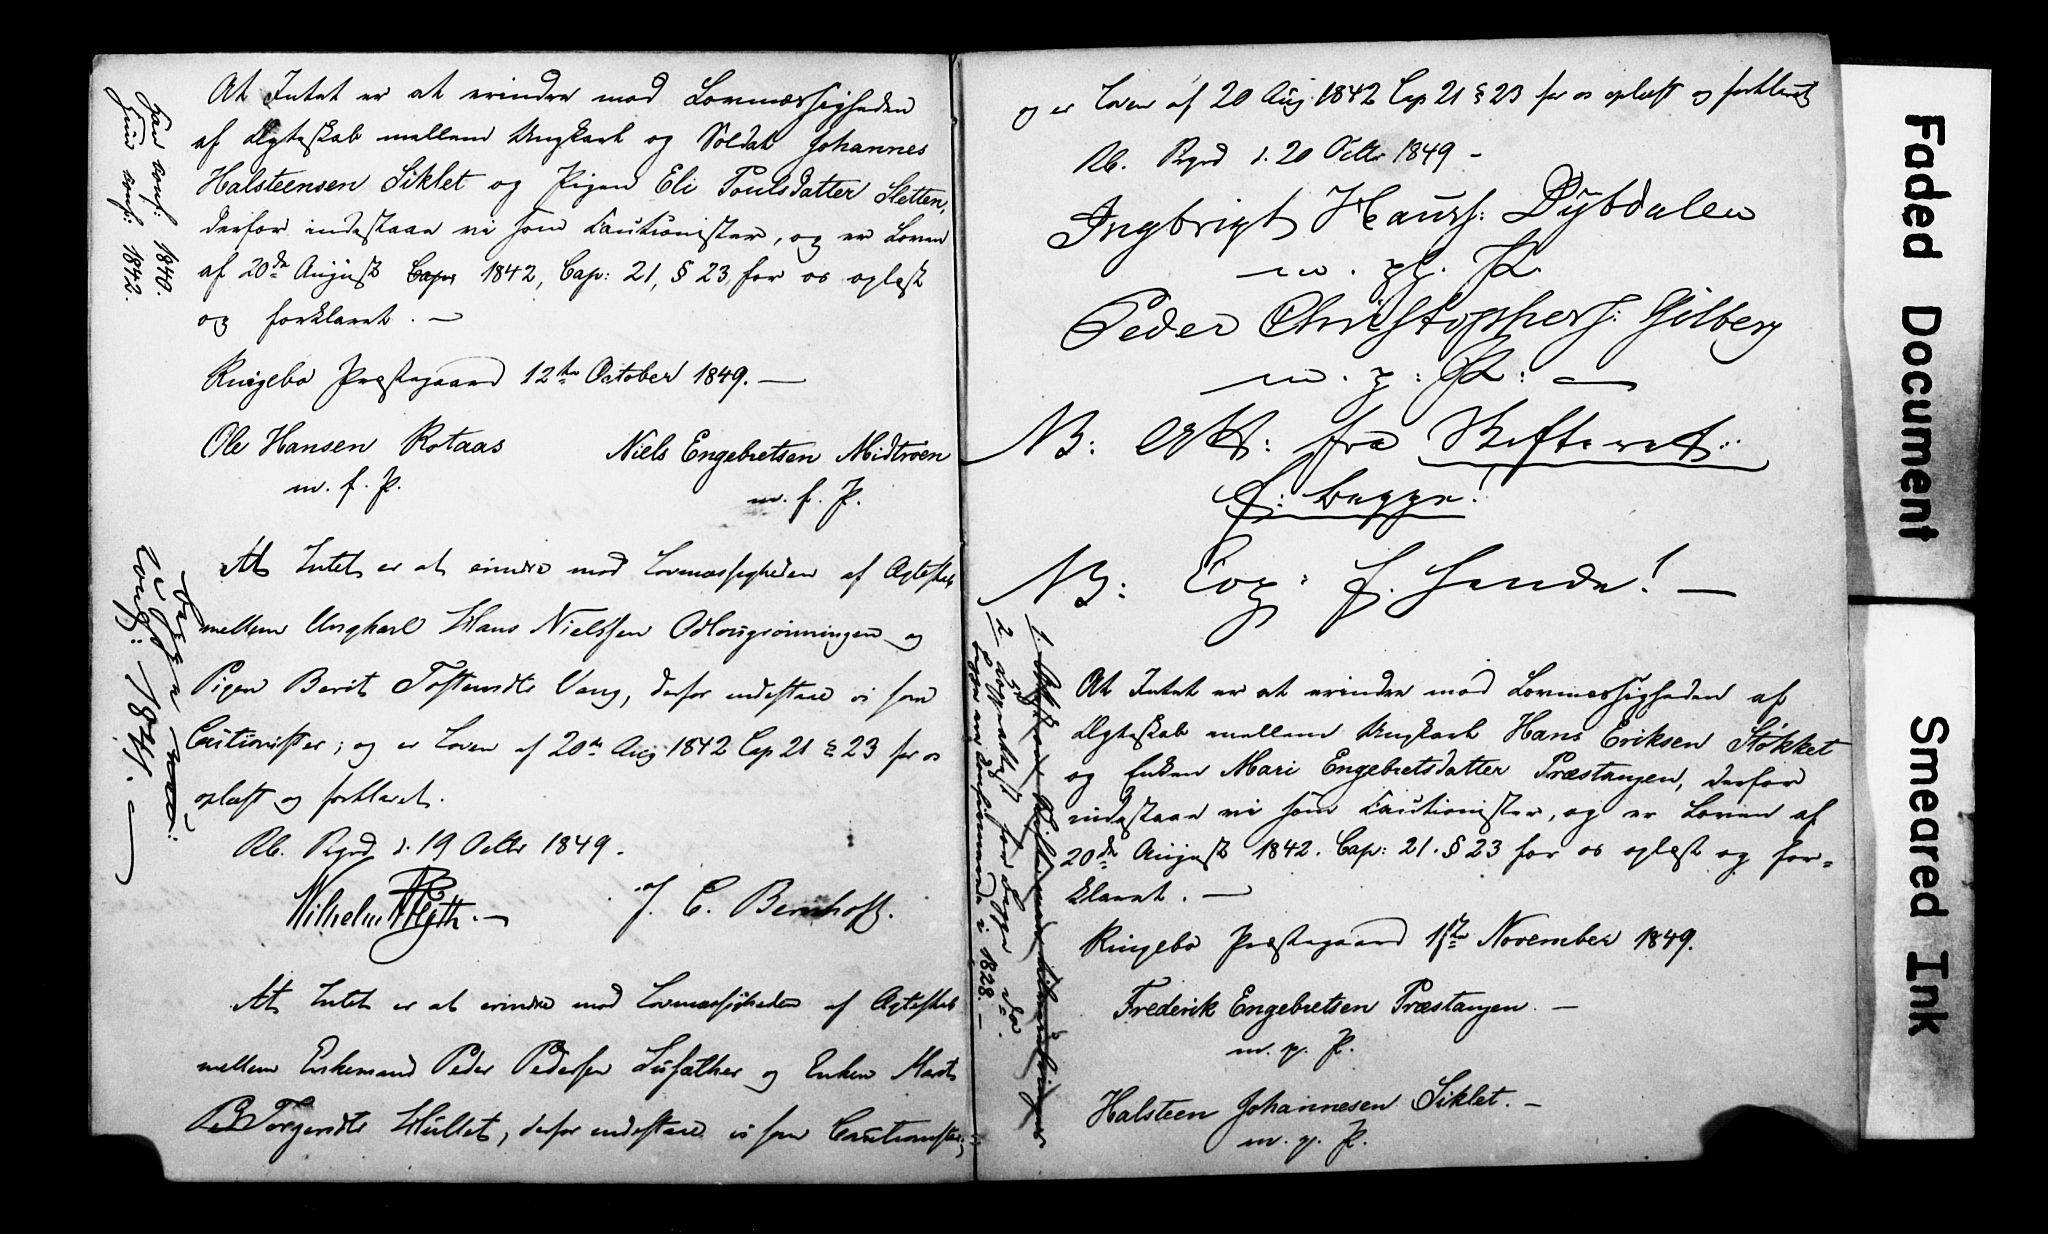 At Intet er at erindre mod Lovmæssigheden
af Ægteskab mellem Ungkarl og Soldat Johannes
Halsteensen Siklet og Pigen Eli Poulsdatter Sletten,
derfor indestaae vi som Cautionister, og er Loven
af 20de August 1842, Cap: 21, § 23 for os oplæst
og forklaret. —
Ringebo Præstegaard 12te October 1849. —
Ole Hansen Rotaas
m. f. P.
Niels Engebretsen Midtroen
m. f. P.
han conf: 1840.
hun conf: 1842.
At Intet er at erindre mod Lovmæssigheden af Ægteskab
mellem Ungkarl Hans Nielssen Odlougrønningen og
Pigen Berit Tostensdtr Vang, derfor indestaae vi som
Cautionister; og er Loven af 20de Aug 1842 Cap 21 § 23 for os
oplæst og forklaret.
Rb. Pgrd d. 19 Octbr 1849.
Wilhelm Blyth. —
J. C. Bernhoft.
begge
conf: 1841. —
At Intet er at erindre mod Lovmæssigheden af Ægteskab
mellem Enkemand Peder Pedersen og Enken Marit
Torgersdtr Hullet, derfor indestaae vi som Cautionister;
og er Loven af 20 Aug 1842 Cap 21 § 23 for os oplæst og forklaret
Rb. Pgrd d. 20 Octbr 1849 —
Ingbrigt Hanss: Dybdalen
m. p. P.
Peder Christophers: Gilberg
m. p: P: —
NB: Att: fra Skifteret:
f: begge!
NB: Cop: f. hende! —
1. Attest om Skifte
2 Koppeattest for begge do.
begge ere confirmerede i 1828. —
At Intet er at erindre mod Lovmæssigheden af
Ægteskab mellem Ungkarl Hans Eriksen Stokket
og Enken Mari Engebretsdatter Præstangen, derfor
indestaae vi som Cautionister, og er Loven af
20de August 1842. Cap: 21. § 23 for os oplæst og for=
klaret. —
Ringebo Præstegaard November 1849.
Frederik Engebretsen Præstangen. —
m. p. P.
Halsteen Johannesen Siklet. —
m. p. P.
Faded Document
Smeared Ink